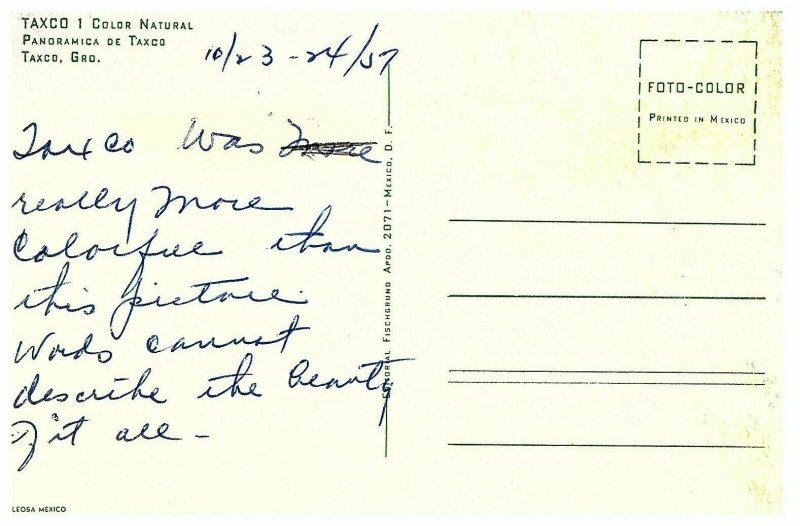 TAXCO 1 COLOR NATURAL
PANORAMICA DE TAXCO
TAXCO, GRO.
10/23-24/57
FOTO-COLOR
PRINTED IN MEXICO
Taxco was
really more
colorful than
this picture.
Words cannot
describe the beauty
of it all -
EDITORIAL FISCHGRUND APDO. 2071-MEXICO, D. F.
LEOSA MEXICO